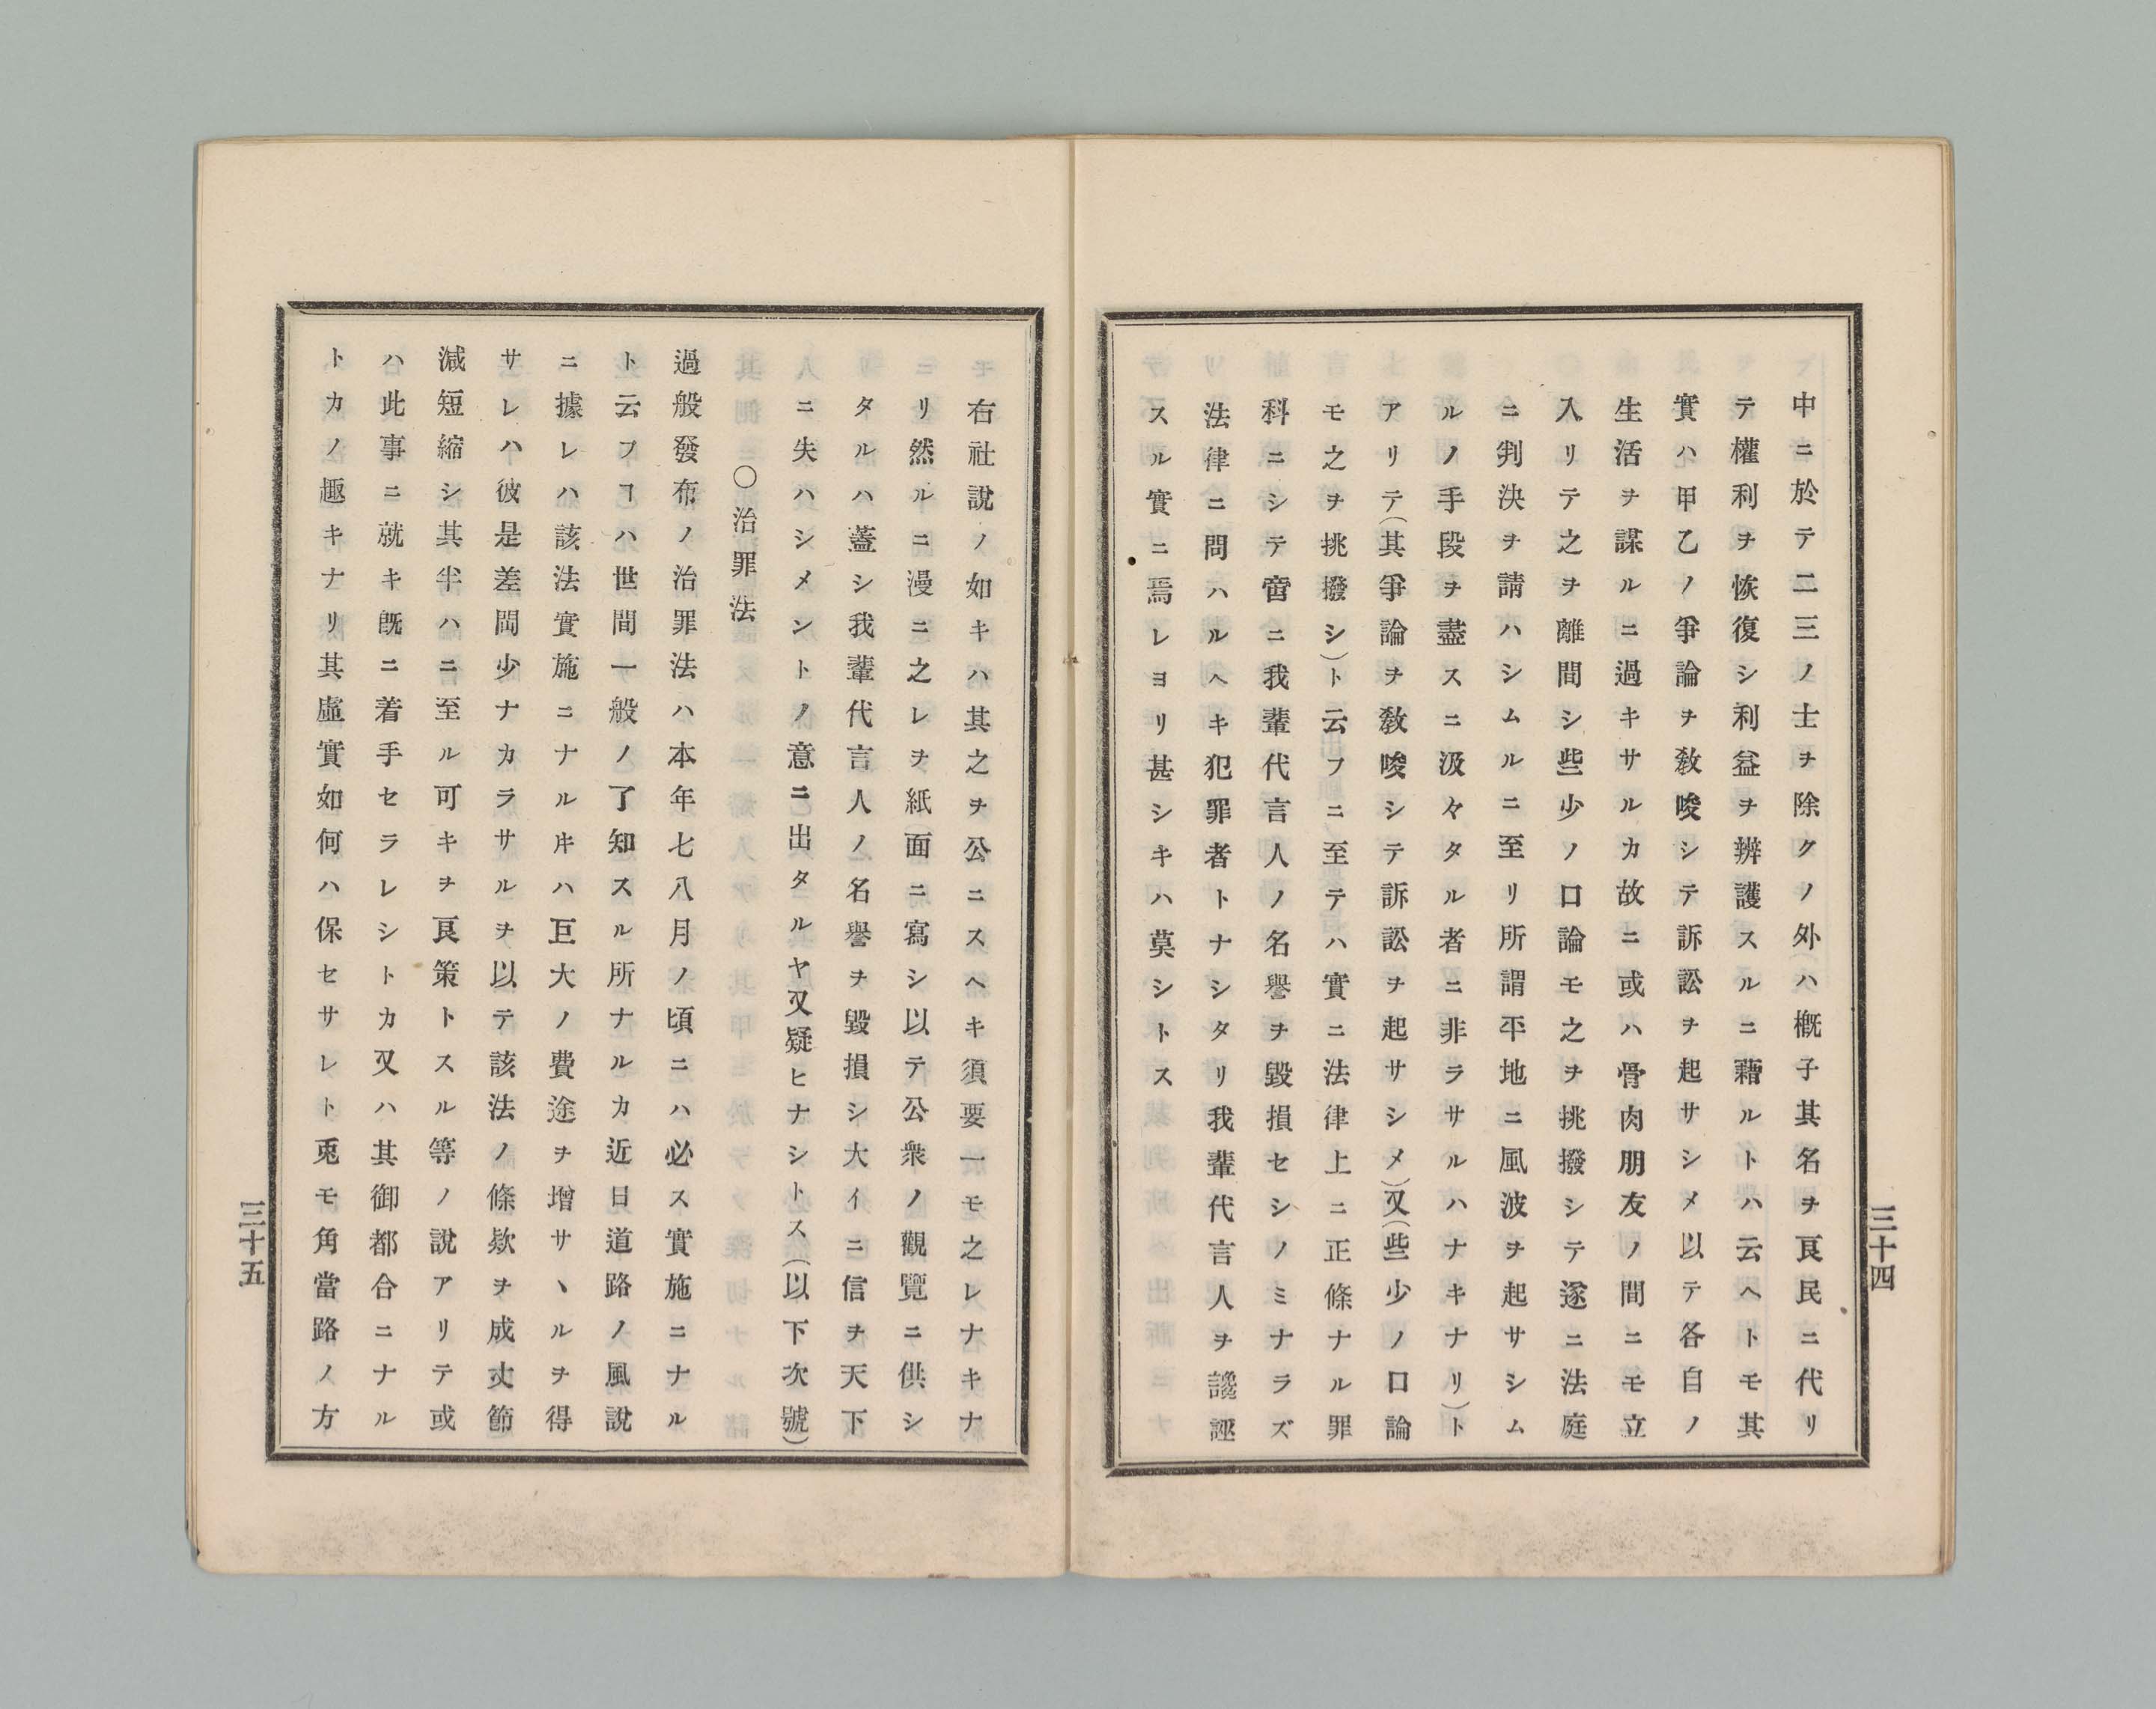 中ニ於テ二三ノ士ヲ除クノ外(ハ概子其名ヲ良民ニ代リ
テ權利ヲ恢復シ利益ヲ辨護スルニ藉ルトハ云ヘトモ其
實ハ甲乙ノ爭論ヲ敎唆シテ訴訟ヲ起サシメ以テ各自ノ
生活ヲ謀ルニ過キサルカ故ニ或ハ骨肉朋友ノ間ニモ立
入リテ之ヲ離間シ些少ノ口論モ之ヲ挑撥シテ遂ニ法庭
ニ判決ヲ請ハシムルニ至リ所謂平地ニ風波ヲ起サシム
ルノ手段ヲ盡スニ汲々タル者ニ非ラサルハナキナリ)ト
アリテ(其爭論ヲ敎唆シテ訴訟ヲ起サシメ)又(些少ノ口論
モ之ヲ挑撥シ)ト云フニ至テハ實ニ法律上ニ正條ナル罪
科ニシテ啻ニ我輩代言人ノ名譽ヲ毀損セシノミナラズ
法律ニ問ハルヘキ犯罪者トナシタリ我輩代言人ヲ讒誣
スル實ニ焉レヨリ甚シキハ莫シトス
三十四
右社說ノ如キハ其之ヲ公ニスヘキ須要一モ之レナキナ
リ然ルニ漫ニ之レヲ紙面ニ寫シ以テ公衆ノ觀覽ニ供シ
タルハ蓋シ我輩代言人ノ名譽ヲ毀損シ大イニ信ヲ天下
ニ失ハシメントノ意ニ出タルヤ又疑ヒナシトス(以下次號)
○治罪法
過般發布ノ治罪法ハ本年七八月ノ頃ニハ必ス實施ニナル
ト云フヿハ世間一般ノ了知スル所ナルカ近日道路ノ風說
ニ據レハ該法實施ニナルキハ巨大ノ費途ヲ增サヽルヲ得
サレハ彼是差閊少ナカラサルヲ以テ該法ノ條欵ヲ成丈節
減短縮シ其半ハニ至ル可キヲ良策トスル等ノ說アリテ或
ハ此事ニ就キ既ニ着手セラレシトカ又ハ其御都合ニナル
トカノ趣キナリ其虛實如何ハ保セサレト兎モ角當路ノ方
三十五